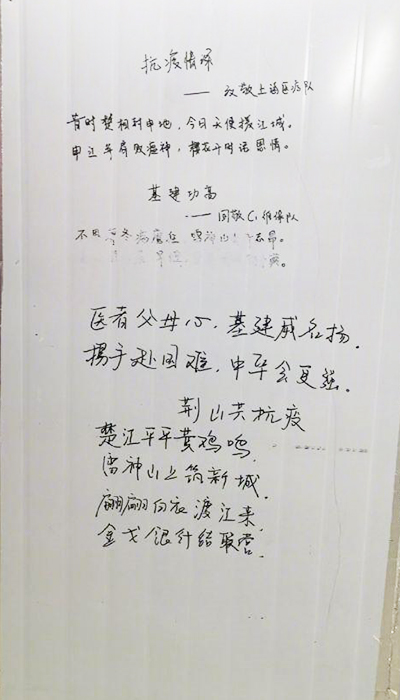 抗疫情深
——致敬上海医疗队
昔时楚相封申地，今日天使援江城。
申江平房败瘟神，樱花千树话恩情。
基建功高
——回敬C1维保队
不畏寒冬病魔
医者父母心，基建威名扬，
携手赴国难，中华会更强。
荆山共抗疫
楚江平平黄鸡鸣，
雷神山上筑新城，
翩翩白衣渡江来，
金戈银针结联营，